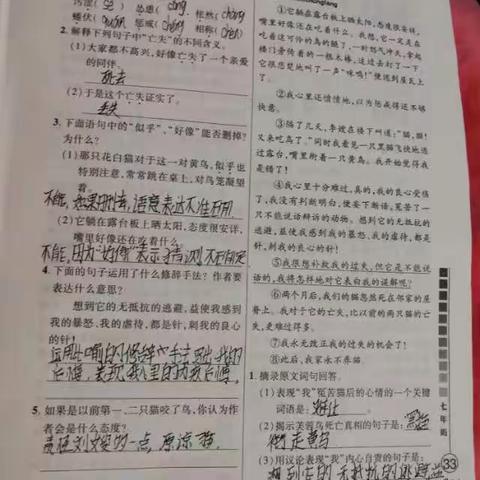 2. 解释下列句子中“亡失”的不同含义。
(1)大家都不高兴,好像亡失了一个亲爱
的同伴。
死去
(2)于是这个亡失证实了。
丢失
3. 下面语句中的“似乎”、“好像”能否删掉?
为什么?
(1)那只花白猫对于这一对黄鸟,似乎也
特别注意,常常跳在桌上,对鸟笼凝望
着。
不能,如果删去,语意表达不准确
(2)它躺在露台板上晒太阳,态度很安详,
嘴里好像还在吃着什么。
不能,因为“好像”表示猜测,不确定
4. 下面的句子运用了什么修辞手法?作者要
表达什么意思?
想到它的无抵抗的逃避,益使我感到
我的暴怒、我的虐待,都是针,刺我的良心
的针!
5. 如果是以前第一、二只猫咬了鸟,你认为作
者会是什么态度?
①它躺在露台板上晒太阳,态度很安详,
嘴里好像还在吃着什么。我想,它一定是在
吃着这可怜的鸟的腿了,一时怒气冲天,拿起
楼门旁倚着的一根木棒,追过去打了一下。
它很悲楚地叫了一声“咪呜!”便逃到屋瓦上
了。
②我心里还愤愤地,以为惩戒得还不够
快意。
③隔了几天,李嫂在楼下叫道:“猫,猫!
又来吃鸟了。”同时我看见一只黑猫飞快地逃
过露台,嘴里衔着一只黄鸟。我开始觉得我
是错了!
④我心里十分难过,真的,我的良心受伤
了,我没有判断明白,便妄下断语,冤苦了一
只不能说话辩诉的动物。想到它的无抵抗的
逃避,益使我感到我的暴怒、我的虐待,都是
针,刺我的良心的针!
⑤我很想补救我的过失,但它是不能说
话的,我将怎样地对它表白我的误解呢?
⑥两个月后,我们的猫忽然死在邻家的屋
脊上。我对于它的亡失,比以前的两只猫的亡
失,更难过得多。
⑦我永无改正我的过失的机会了!
⑧此后,我家永不养猫。
1. 摘录原文词句回答。
(1)表现“我”冤苦猫后的心情的一个关键
词语是:
(2)揭示芙蓉鸟死亡真相的句子是:
(3)用议论表现“我”内心自责的句子是:
七年级
33